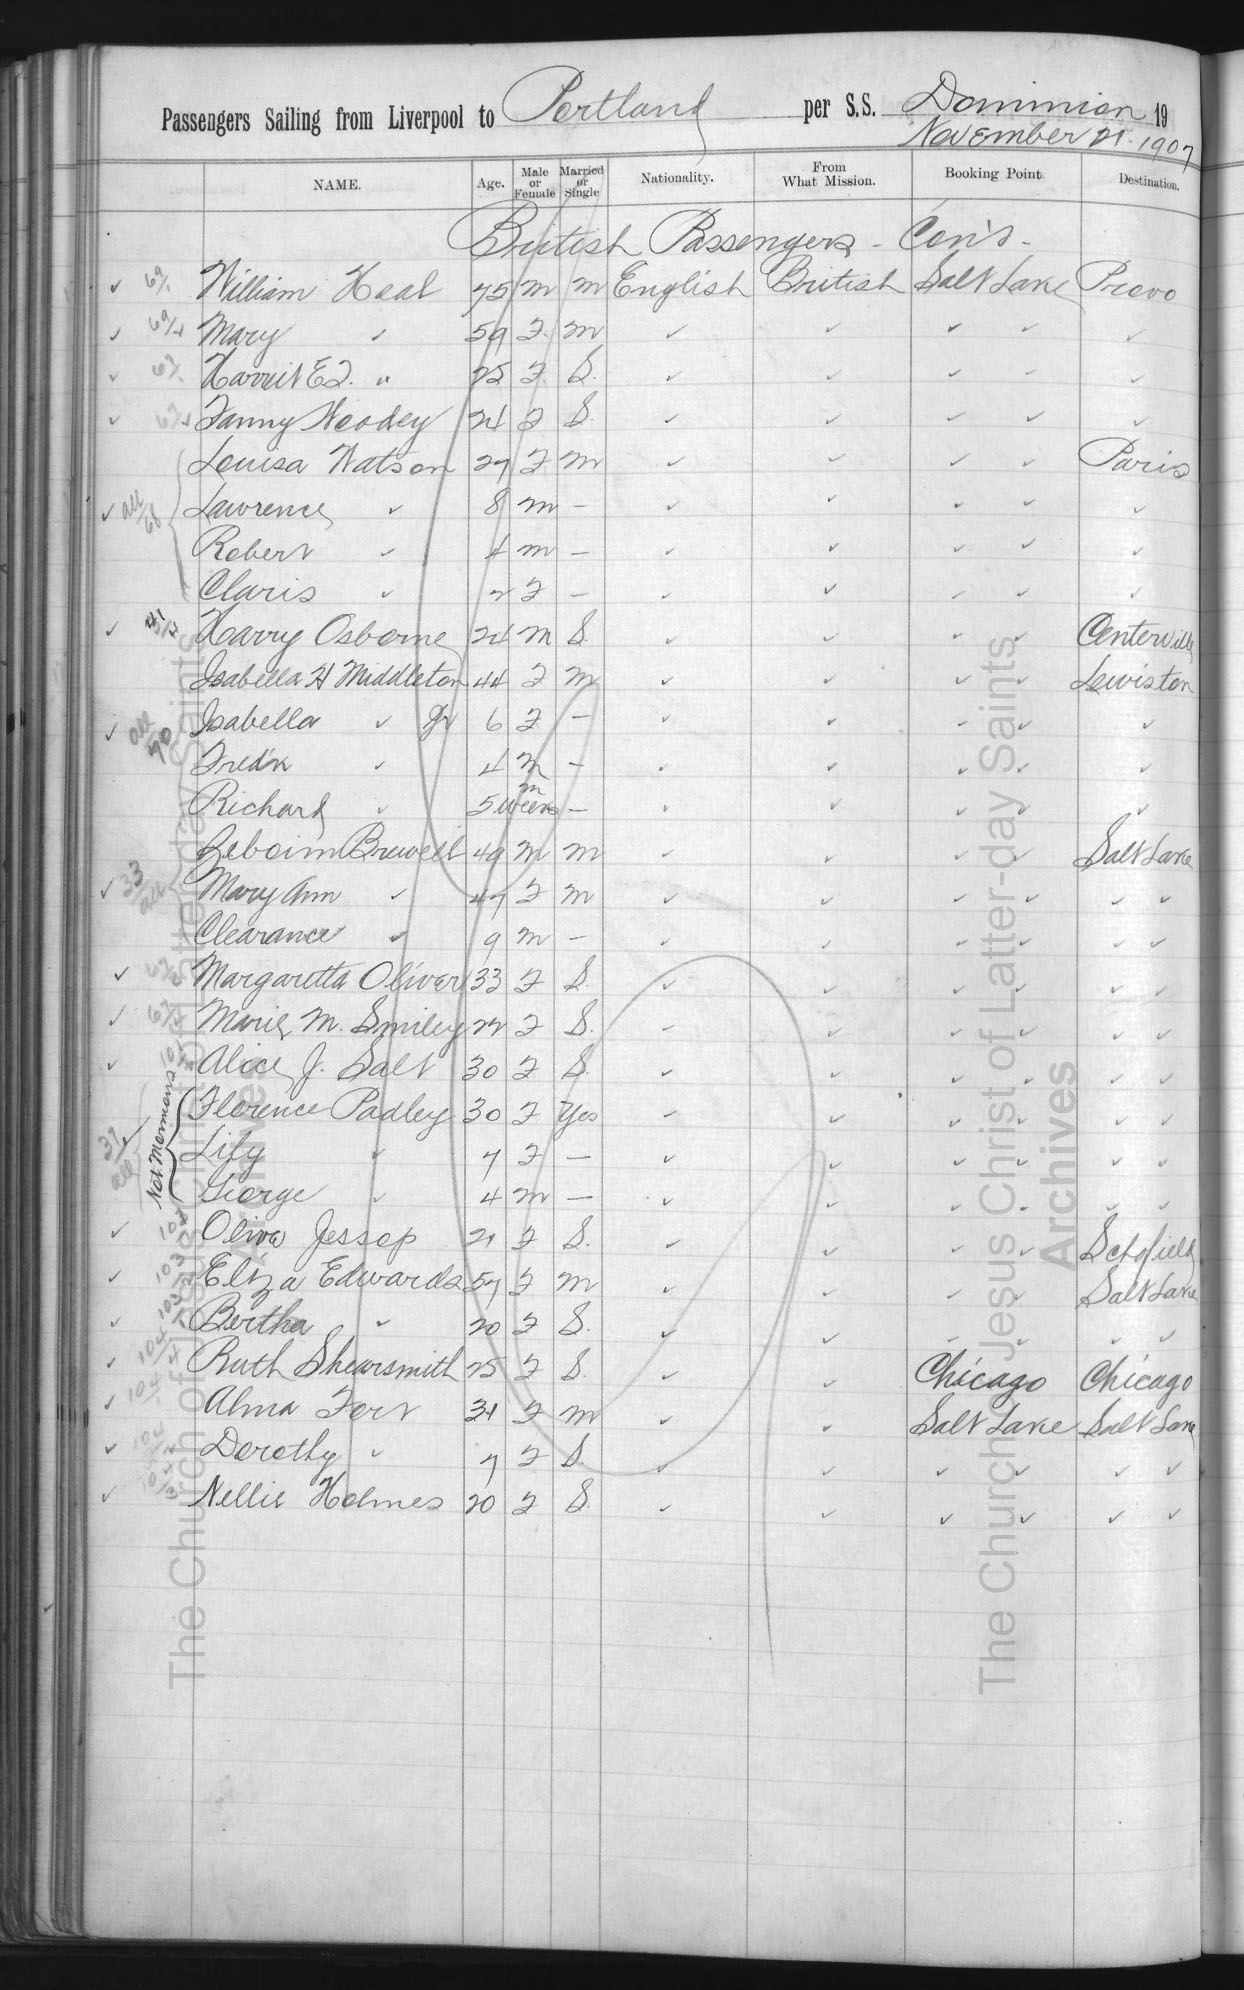 Passengers Sailing from Liverpool to Portland per S.S. Dominion 19
November 21. 1907
NAME. Age. Male or Female Married or Single Nationality. From What Mission. Booking Point. Destination.
British Passengers - Con's -
✓ 69/1 William Heal 75 m m English British Salt Lake Provo
✓ 69/2 Mary ✓ 59 F. m ✓ ✓ ✓ ✓ ✓
✓ Harriet E F. " 25 F. S. ✓ ✓ ✓ ✓ ✓
✓ Fanny Woodey 24 F S. ✓ ✓ ✓ ✓ ✓
Louisa Watson 27 F m ✓ ✓ ✓ ✓ Paris
✓ all 68 Lawrence ✓ 8 m – ✓ ✓ ✓ ✓ ✓
Robert ✓ 4 m – ✓ ✓ ✓ ✓ ✓
Claris ✓ 2 F – ✓ ✓ ✓ ✓ ✓
✓ Harry Osborne 24 m S. ✓ ✓ ✓ ✓ Centerville
Isabella H Middleton 44 F m ✓ ✓ ✓ ✓ Lewiston
✓ all 70 Isabella ✓ Jr 6 F – ✓ ✓ ✓ ✓ ✓
Fred'k ✓ 4 m – ✓ ✓ ✓ ✓ ✓
Richard ✓ 5 weeks m – ✓ ✓ ✓ ✓ ✓
Zeboim Brewell 49 m m ✓ ✓ ✓ ✓ Salt Lake
✓ 33 all Mary Ann ✓ 47 F m ✓ ✓ ✓ ✓ ✓ ✓
Clearance ✓ 9 m – ✓ ✓ ✓ ✓ ✓ ✓
✓ Margaretta Oliver 33 F S. ✓ ✓ ✓ ✓ ✓ ✓
✓ Marie M. Smiley 22 F S. ✓ ✓ ✓ ✓ ✓ ✓
✓ Alice J. Salt 30 F S. ✓ ✓ ✓ ✓ ✓ ✓
Not Mormons Florence Padley 30 F Yes ✓ ✓ ✓ ✓ ✓ ✓
37 all Lily ✓ 7 F – ✓ ✓ ✓ ✓ ✓ ✓
George ✓ 4 m – ✓ ✓ ✓ ✓ ✓ ✓
✓ Oliva Jessop 21 F S. ✓ ✓ ✓ ✓ Schofield
✓ 103 Eliza Edwards 57 F m ✓ ✓ ✓ ✓ Salt Lake
✓ 103 Bertha ✓ 20 F S. ✓ ✓ ✓ ✓ ✓ ✓
✓ 104 Ruth Shearsmith 25 F S. ✓ ✓ Chicago Chicago
✓ 104 Alma Fort 31 F m ✓ ✓ Salt Lake Salt Lake
✓ 104 Dorothy ✓ 7 F S. ✓ ✓ ✓ ✓ ✓ ✓
✓ Nellie Holmes 20 F S. ✓ ✓ ✓ ✓ ✓ ✓
The Church of Jesus Christ of Latter-day Saints
Archives
The Church of Jesus Christ of Latter-day Saints
Archives